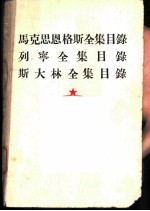 馬克思恩格斯全集目錄
列寧全集目錄
斯大林全集目錄